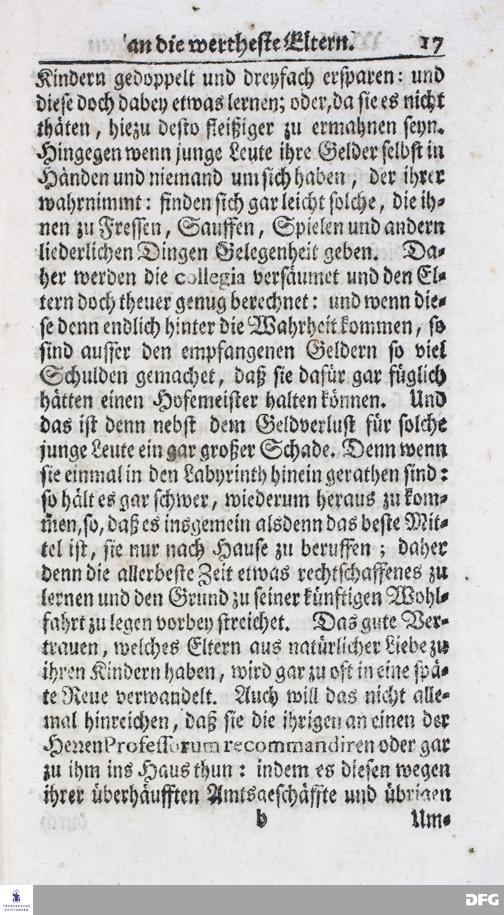 an die wertheste Eltern. 17
Kindern gedoppelt und dreyfach ersparen: und
diese doch dabey etwas lernen; oder, da sie es nicht
thäten, hiezu desto fleißiger zu ermahnen seyn.
Hingegen wenn junge Leute ihre Gelder selbst in
Händen und niemand um sich haben, der ihrer
wahrnimmt: finden sich gar leicht solche, die ih-
nen zu Fressen, Sauffen, Spielen und andern
liederlichen Dingen Gelegenheit geben. Da-
her werden die collegia versäumet und den El-
tern doch theuer genug berechnet: und wenn die-
se denn endlich hinter die Wahrheit kommen, so
sind ausser den empfangenen Geldern so viel
Schulden gemachet, daß sie dafür gar füglich
hätten einen Hofemeister halten können. Und
das ist denn nebst dem Geldverlust für solche
junge Leute ein gar großer Schade. Denn wenn
sie einmal in den Labyrinth hinein gerathen sind:
so hält es gar schwer, wiederum heraus zu kom-
men, so, daß es insgemein alsdenn das beste Mit-
tel ist, sie nur nach Hause zu beruffen; daher
denn die allerbeste Zeit etwas rechtschaffenes zu
lernen und den Grund zu seiner künftigen Wohl-
fahrt zu legen vorbey streichet. Das gute Ver-
trauen, welches Eltern aus natürlicher Liebe zu
ihren Kindern haben, wird gar zu oft in eine spä-
te Reue verwandelt. Auch will das nicht alle-
mal hinreichen, daß sie die ihrigen an einen der
Herren Professorum recommandiren oder gar
zu ihm ins Haus thun: indem es diesen wegen
ihrer überhäufften Amtsgeschäffte und übrigen
b Um-
DFG